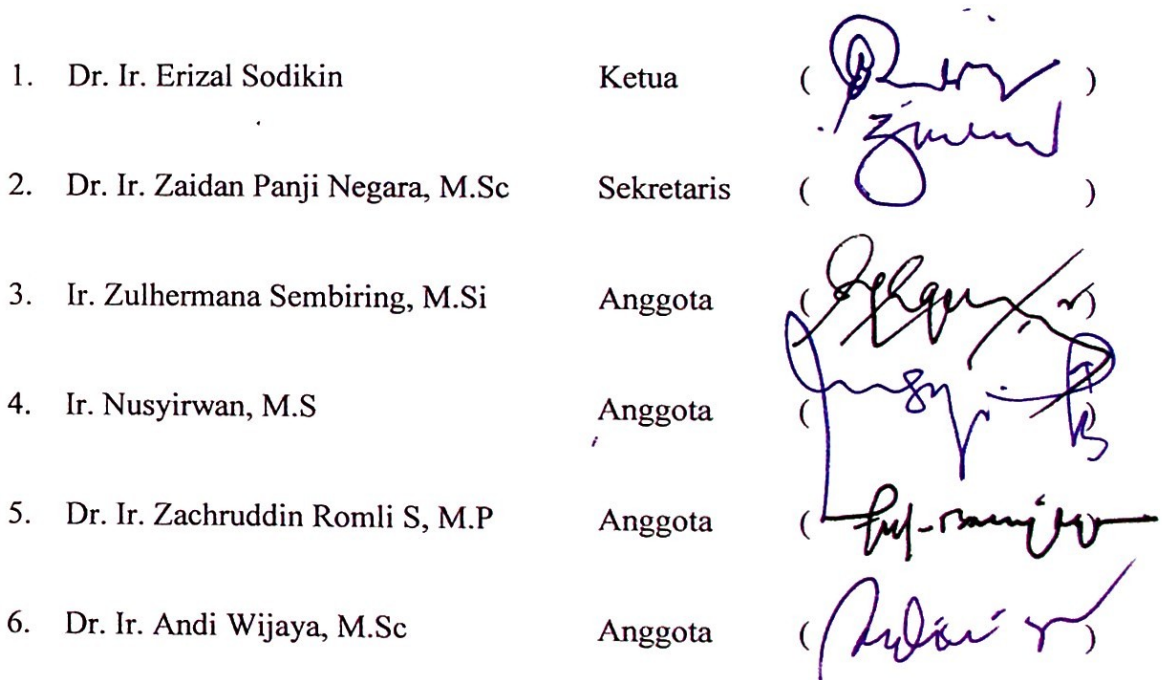 1. Dr. Ir. Erizal Sodikin Ketua ( )
2. Dr. Ir. Zaidan Panji Negara, M.Sc Sekretaris ( )
3. Ir. Zulhermana Sembiring, M.Si Anggota ( )
4. Ir. Nusyirwan, M.S Anggota ( )
5. Dr. Ir. Zachruddin Romli S, M.P Anggota ( )
6. Dr. Ir. Andi Wijaya, M.Sc Anggota ( )